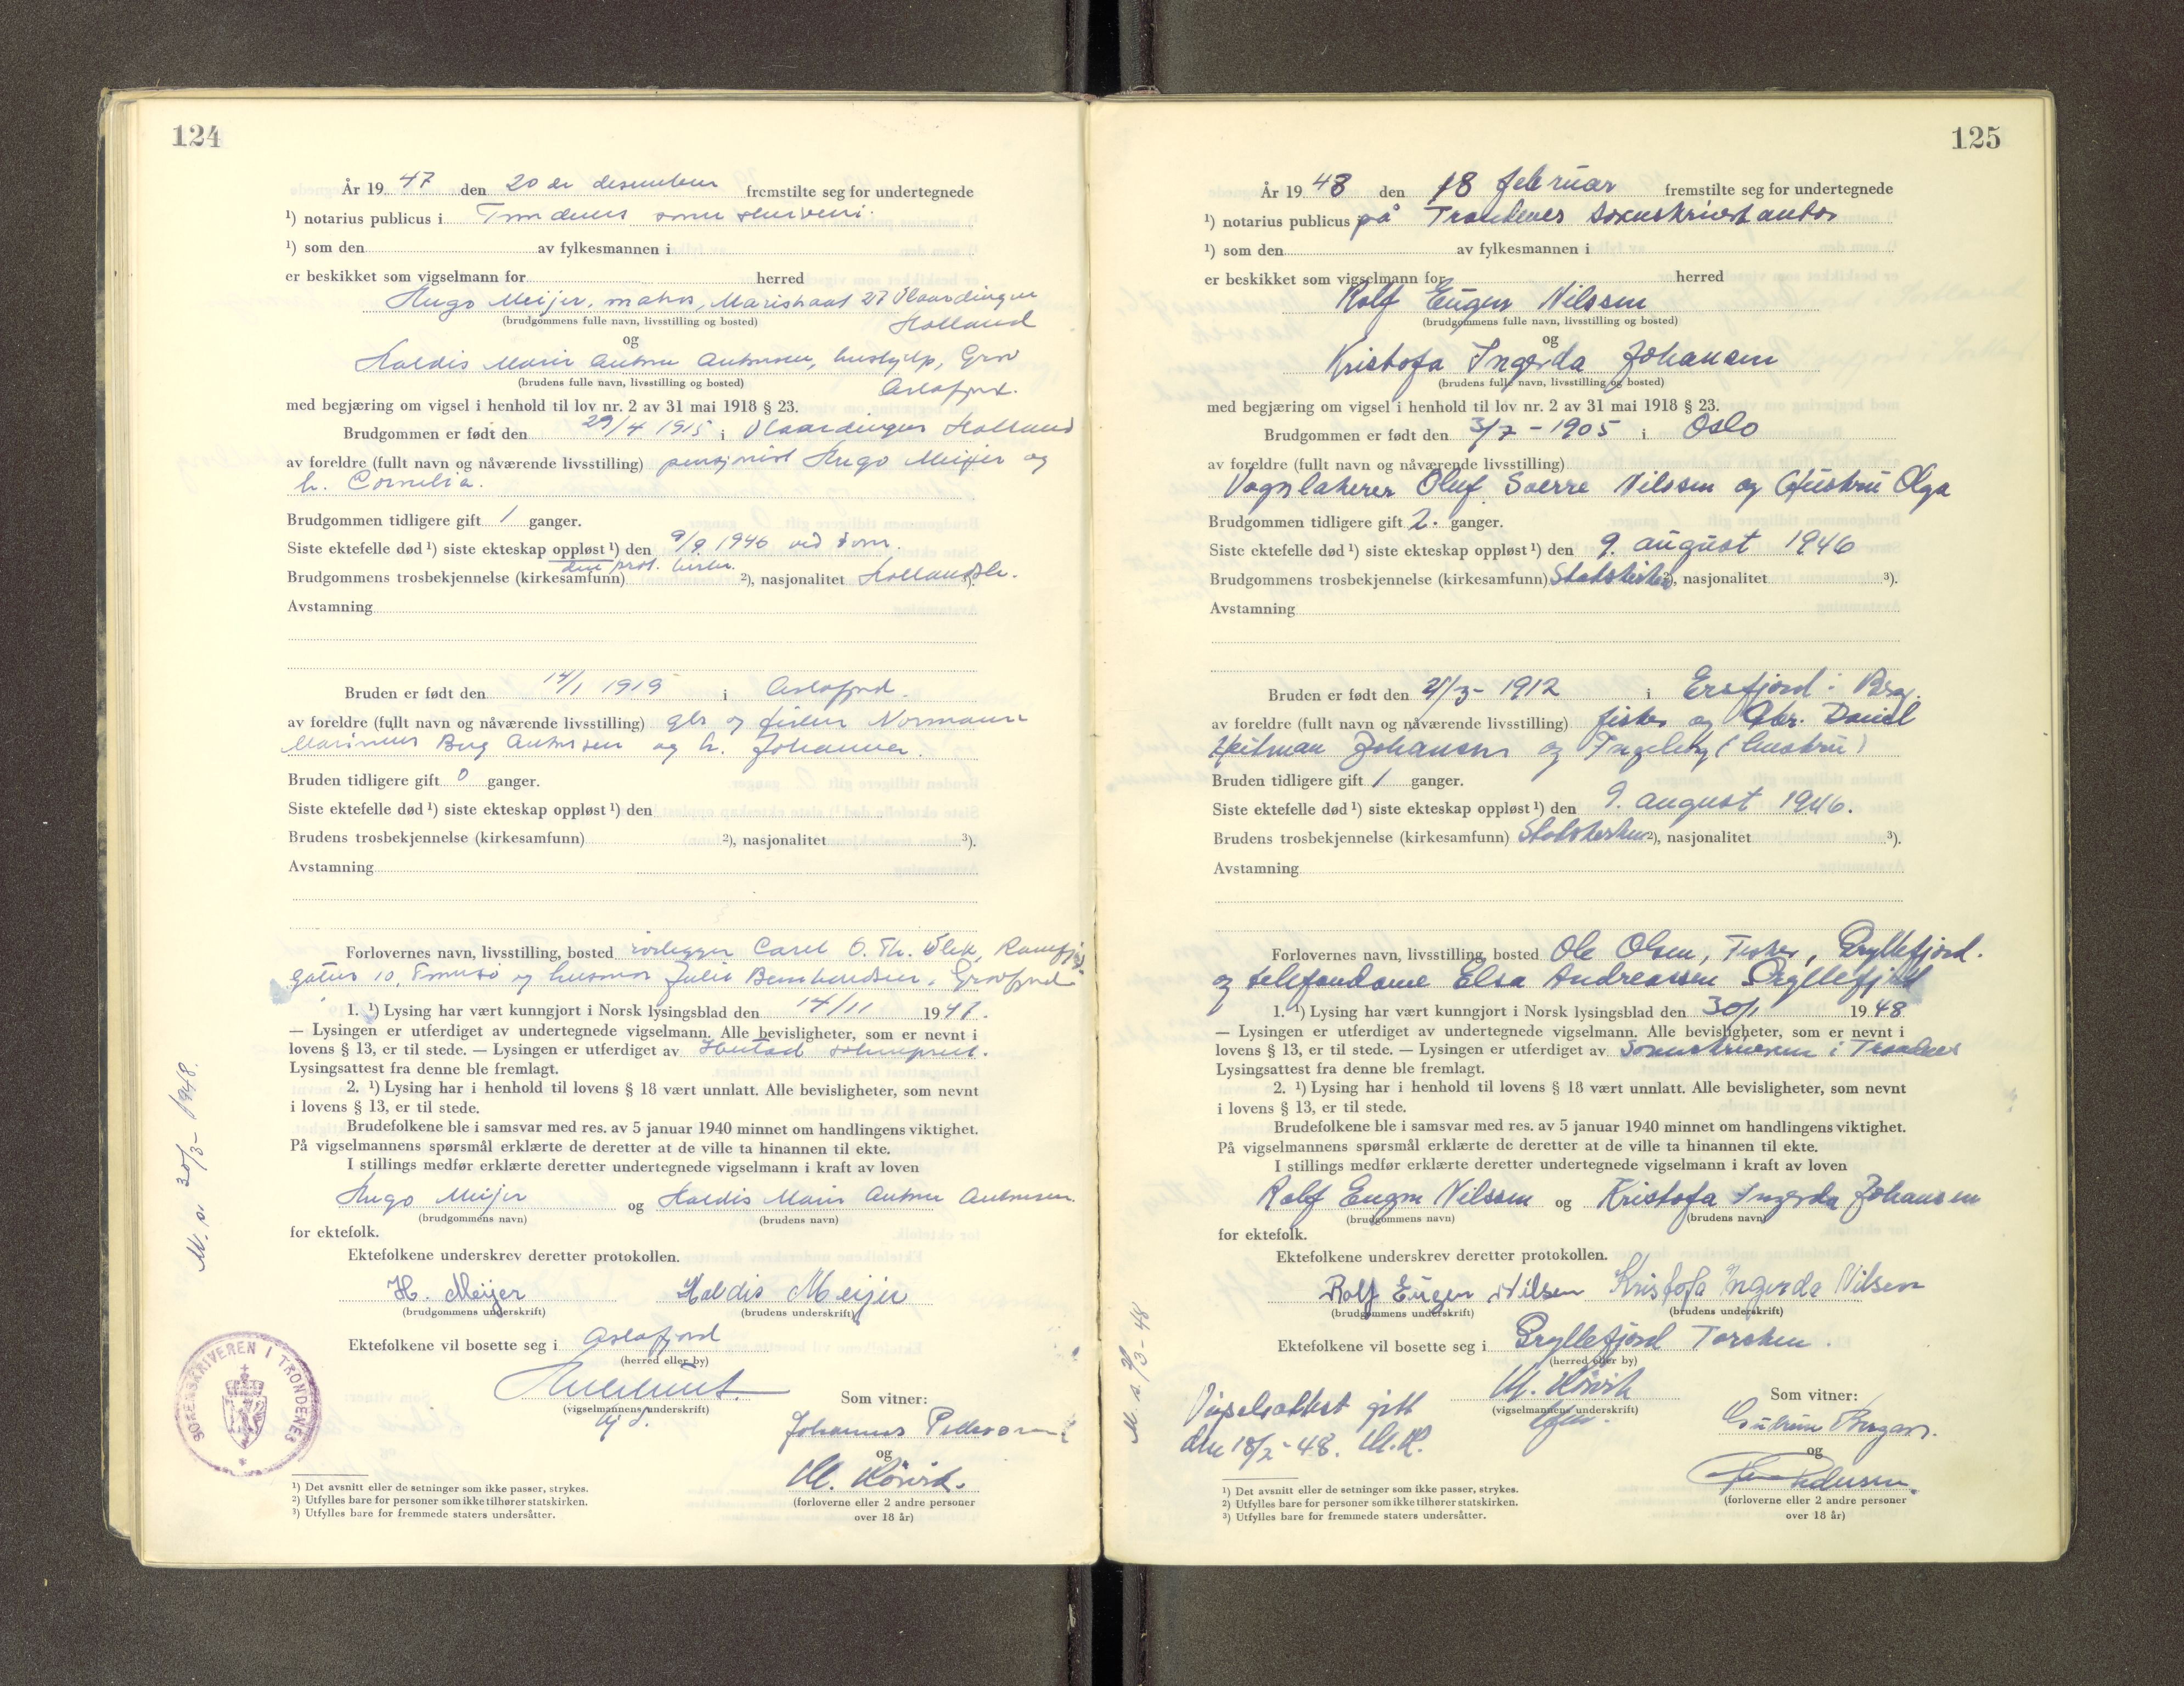 124
År 19 47 den 20 de desember fremstilte seg for undertegnede
¹) notarius publicus i Trondenes
¹) som den av fylkesmannen i
er beskikket som vigselmann for herred
Hugo Meijer, Marisstraat 27 Vlaardingen
(brudgommens fulle navn, livsstilling og bosted) Holland
og
Haldis Marie Antonsen, hushjelp, Grov
(brudens fulle navn, livsstilling og bosted) Astafjord.
med begjæring om vigsel i henhold til lov nr. 2 av 31 mai 1918 § 23.
Brudgommen er født den 29/4 1915 i Vlaardingen Holland
av foreldre (fullt navn og nåværende livsstilling) pensjonist Hugo Meijer og
h. Cornelia.
Brudgommen tidligere gift 1 ganger.
Siste ektefelle død ¹) siste ekteskap oppløst ¹) den 9/9 1946 ved dom.
Brudgommens trosbekjennelse (kirkesamfunn) den prot. kirke. ²), nasjonalitet Hollandsk. ³).
Avstamning
Bruden er født den 14/1 1919 i Astafjord.
av foreldre (fullt navn og nåværende livsstilling) gbr og fisker Normann
Marinius Berg Antonsen og h. Johanna.
Bruden tidligere gift 0 ganger.
Siste ektefelle død ¹) siste ekteskap oppløst ¹) den
Brudens trosbekjennelse (kirkesamfunn) ²), nasjonalitet ³).
Avstamning
Forlovernes navn, livsstilling, bosted rørlegger Carel O. Th. Vlek, Ramfjord
gaten 10, Tromsø og husmor Julie Bernhardsen, Grovfjord
1. ¹) Lysing har vært kunngjort i Norsk lysingsblad den 14/11 1947.
— Lysingen er utferdiget av undertegnede vigselmann. Alle bevisligheter, som er nevnt i
lovens § 13, er til stede. — Lysingen er utferdiget av Ibestad sokneprest.
Lysingsattest fra denne ble fremlagt.
2. ¹) Lysing har i henhold til lovens § 18 vært unnlatt. Alle bevisligheter, som nevnt
i lovens § 13, er til stede.
Brudefolkene ble i samsvar med res. av 5 januar 1940 minnet om handlingens viktighet.
På vigselmannens spørsmål erklærte de deretter at de ville ta hinannen til ekte.
I stillings medfør erklærte deretter undertegnede vigselmann i kraft av loven
Hugo Meijer og Haldis Marie Antonsen
(brudgommens navn) (brudens navn)
for ektefolk.
Ektefolkene underskrev deretter protokollen.
H. Meijer Haldis Meijer
(brudgommens underskrift) (brudens underskrift)
Ektefolkene vil bosette seg i Astafjord
(herred eller by)
(vigselmannens underskrift)
Som vitner:
Johannes Pedersen
og
M. Hörvik.
(forloverne eller 2 andre personer
over 18 år)
¹) Det avsnitt eller de setninger som ikke passer, strykes.
²) Utfylles bare for personer som ikke tilhører statskirken.
³) Utfylles bare for fremmede staters undersåtter.
M. s. 30/3 - 1948.
SORENSKRIVEREN I TRONDENES
125
År 19 48 den 18 februar fremstilte seg for undertegnede
¹) notarius publicus på Trondenes sorenskriverkontor
¹) som den av fylkesmannen i
er beskikket som vigselmann for herred
Rolf Eugen Nilssen
(brudgommens fulle navn, livsstilling og bosted)
og
Kristofa Ingerda Johansen
(brudens fulle navn, livsstilling og bosted)
med begjæring om vigsel i henhold til lov nr. 2 av 31 mai 1918 § 23.
Brudgommen er født den 3/7 - 1905 i Oslo
av foreldre (fullt navn og nåværende livsstilling)
Vognlakerer Oluf Sverre Nilssen og hustru Olga
Brudgommen tidligere gift 2. ganger.
Siste ektefelle død ¹) siste ekteskap oppløst ¹) den 9. august 1946
Brudgommens trosbekjennelse (kirkesamfunn) Statskirken ²), nasjonalitet ³).
Avstamning
Bruden er født den 21/3 - 1912 i Ersfjord i Berg.
av foreldre (fullt navn og nåværende livsstilling) fisker og Gbr. Daniel
Heitman Johansen og Ingeborg (hustru)
Bruden tidligere gift 1 ganger.
Siste ektefelle død ¹) siste ekteskap oppløst ¹) den 9. august 1946.
Brudens trosbekjennelse (kirkesamfunn) Statskirken ²), nasjonalitet ³).
Avstamning
Forlovernes navn, livsstilling, bosted Ole Olsen, Fisker, Gryllefjord.
og telefondame Elsa Andreassen Gryllefjord
1. ¹) Lysing har vært kunngjort i Norsk lysingsblad den 30/1 1948
— Lysingen er utferdiget av undertegnede vigselmann. Alle bevisligheter, som er nevnt i
lovens § 13, er til stede. — Lysingen er utferdiget av Sorenskriveren i Trondenes
Lysingsattest fra denne ble fremlagt.
2. ¹) Lysing har i henhold til lovens § 18 vært unnlatt. Alle bevisligheter, som nevnt
i lovens § 13, er til stede.
Brudefolkene ble i samsvar med res. av 5 januar 1940 minnet om handlingens viktighet.
På vigselmannens spørsmål erklærte de deretter at de ville ta hinannen til ekte.
I stillings medfør erklærte deretter undertegnede vigselmann i kraft av loven
Rolf Eugen Nilssen og Kristofa Ingerda Johansen
(brudgommens navn) (brudens navn)
for ektefolk.
Ektefolkene underskrev deretter protokollen.
Rolf Eugen Nilsen Kristofa Ingerda Nilsen
(brudgommens underskrift) (brudens underskrift)
Ektefolkene vil bosette seg i Gryllefjord Torsken.
(herred eller by)
M. Hörvik
(vigselmannens underskrift)
Vigselsattest gitt
den 18/2 - 48. M.H.
Som vitner:
og
Pedersen.
(forloverne eller 2 andre personer
over 18 år)
¹) Det avsnitt eller de setninger som ikke passer, strykes.
²) Utfylles bare for personer som ikke tilhører statskirken.
³) Utfylles bare for fremmede staters undersåtter.